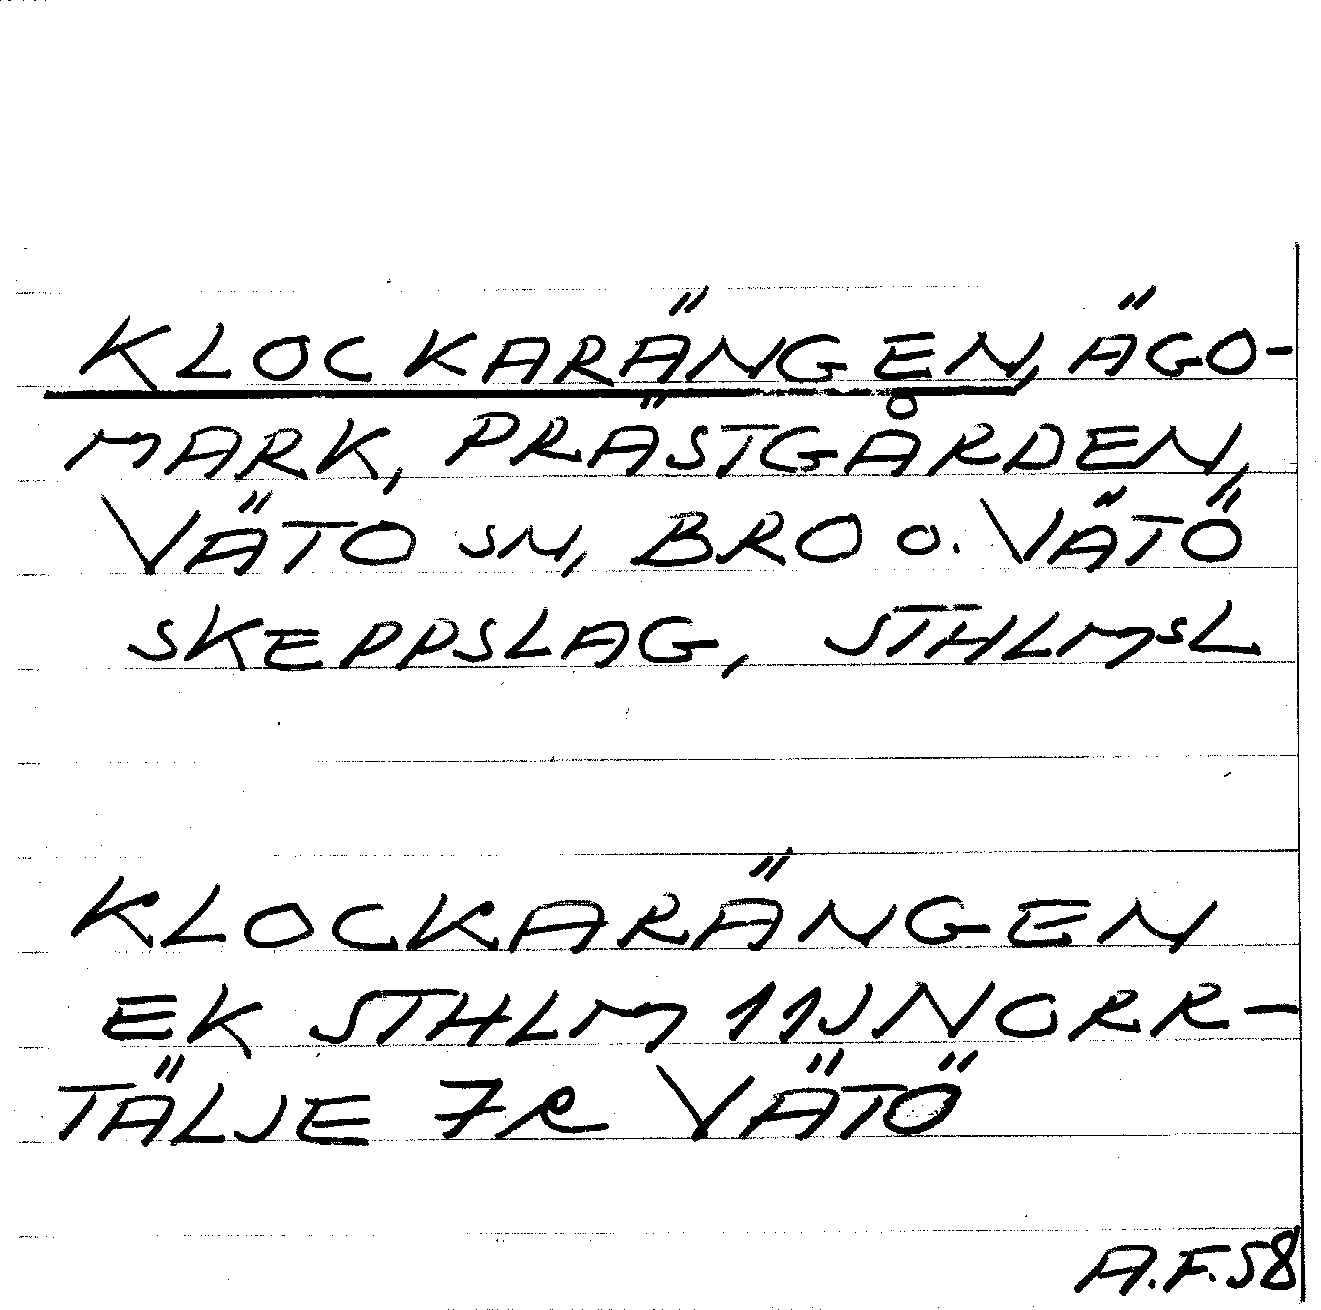 KLOCKARÄNGEN, ÄGO-
MARK, PRÄSTGÅRDEN,
VÄTO SN, BRO O. VÄTÖ
SKEPPSLAG, STHLMSL
KLOCKARÄNGEN
EK STHLM 11J NORR-
TÄLJE 7R VÄTÖ
A.F.58